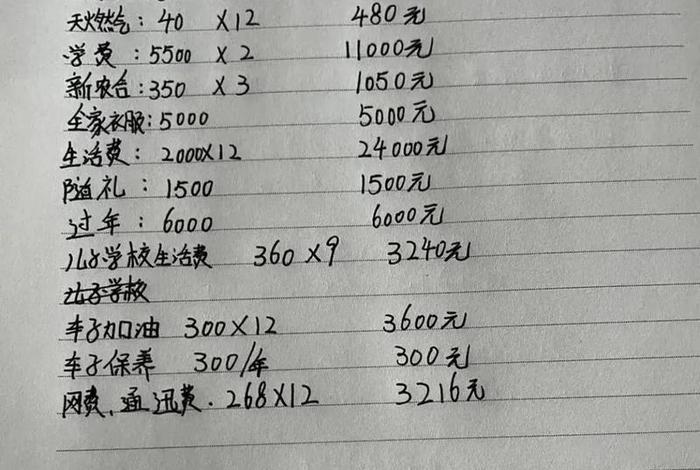 天燃气: 40 X12 480元
学费: 5500 X 2 11000元
新农合: 350 X 3 1050元
全家衣服: 5000 5000元
生活费: 2000X12 24000元
随礼: 1500 1500元
过年: 6000 6000元
儿子学校生活费 360 X 9 3240元
儿子学校
车子加油 300X12 3600元
车子保养 300/年 300元
网费、通讯费. 268X12 3216元